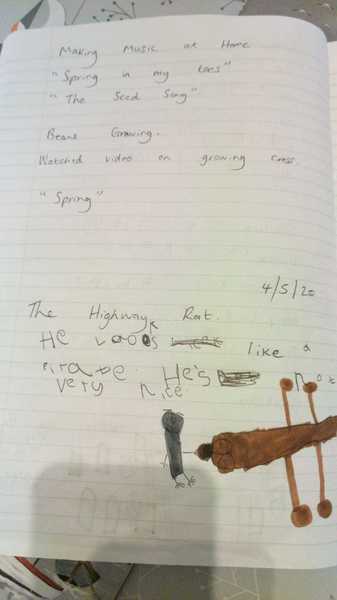 Making Music at Home
"Spring in my toes"
"The Seed Song"
Beans Growing.
Watched video on growing cress.
"Spring"
4/5/20
The Highway Rat.
He looks like a
Pirate. He's not
very nice.